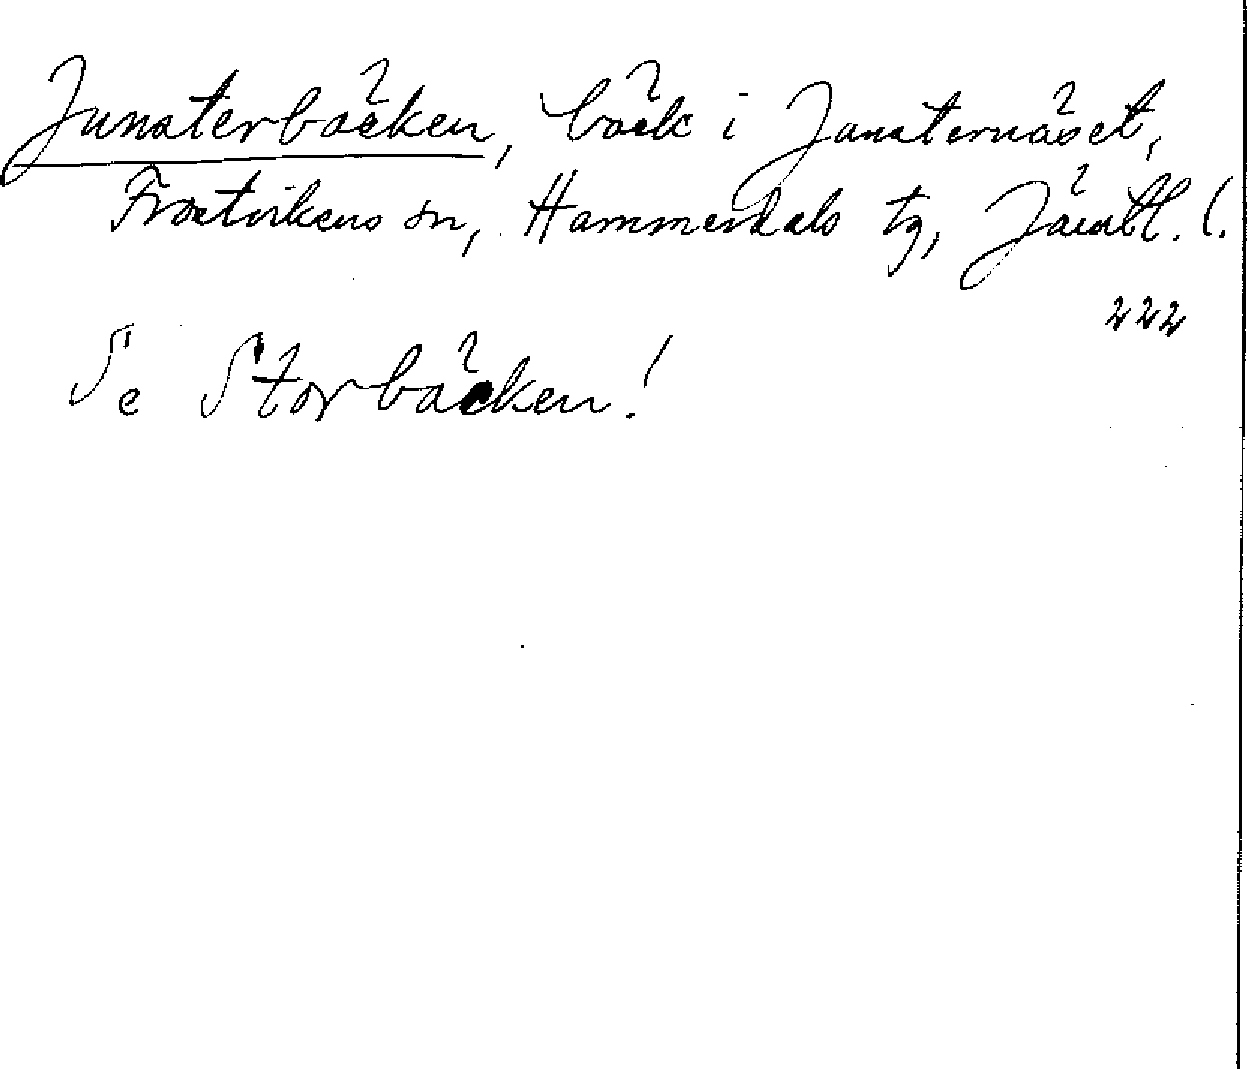 Junsterbäcken, bäck i Junsternäset,
Frostvikens sn, Hammerdals tg, Jämtl. l.
222
Se Storbäcken!